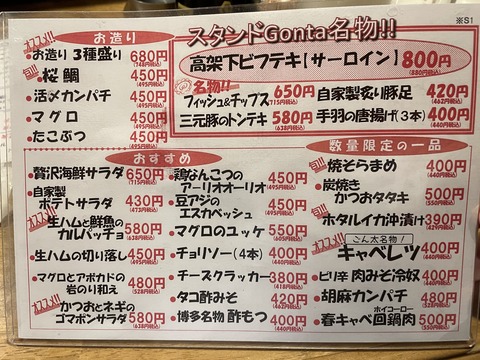 ※S1
オススメ!!
お造り
お造り 3種盛り 680円
(748円税込)
旬!!
桜鯛 450円
(495円税込)
活〆カンパチ 450円
(495円税込)
マグロ 450円
(495円税込)
たこぶつ 450円
(495円税込)
スタンドGonta名物!!
高架下ビフテキ【サーロイン】 800円
(880円税込)
名物!!
フィッシュ&チップス 650円
(715円税込)
三元豚のトンテキ 580円
(638円税込)
自家製炙り豚足 420円
(462円税込)
手羽の唐揚げ(3本) 400円
(440円税込)
おすすめ
贅沢海鮮サラダ 650円
(715円税込)
自家製
ポテトサラダ 430円
(473円税込)
オススメ!!
生ハムと鮮魚の
カルパッチョ 580円
(638円税込)
生ハムの切り落し 450円
(495円税込)
マグロとアボカドの
岩のり和え 480円
(528円税込)
オススメ!!
かつおとネギの
ゴマポンサラダ 580円
(638円税込)
鶏なんこつの
アーリオオーリオ 450円
(495円税込)
豆アジの
エスカベッシュ 450円
(495円税込)
マグロのユッケ 550円
チョリソー(4本) 400円
(440円税込)
チーズクラッカー 380円
(418円税込)
タコ酢みそ 420円
(462円税込)
博多名物 酢もつ 400円
(440円税込)
数量限定の一品
旬!!
焼そらまめ 400円
(440円税込)
炭焼き
かつおタタキ 500円
(550円税込)
旬!!
ホタルイカ沖漬け 390円
(429円税込)
ごん太名物!
オススメ!!
キャベレツ 400円
(440円税込)
ピリ辛 肉みそ冷奴 400円
(440円税込)
胡麻カンパチ 480円
(528円税込)
春キャベ回鍋肉 500円
ホイコーロー
(550円税込)